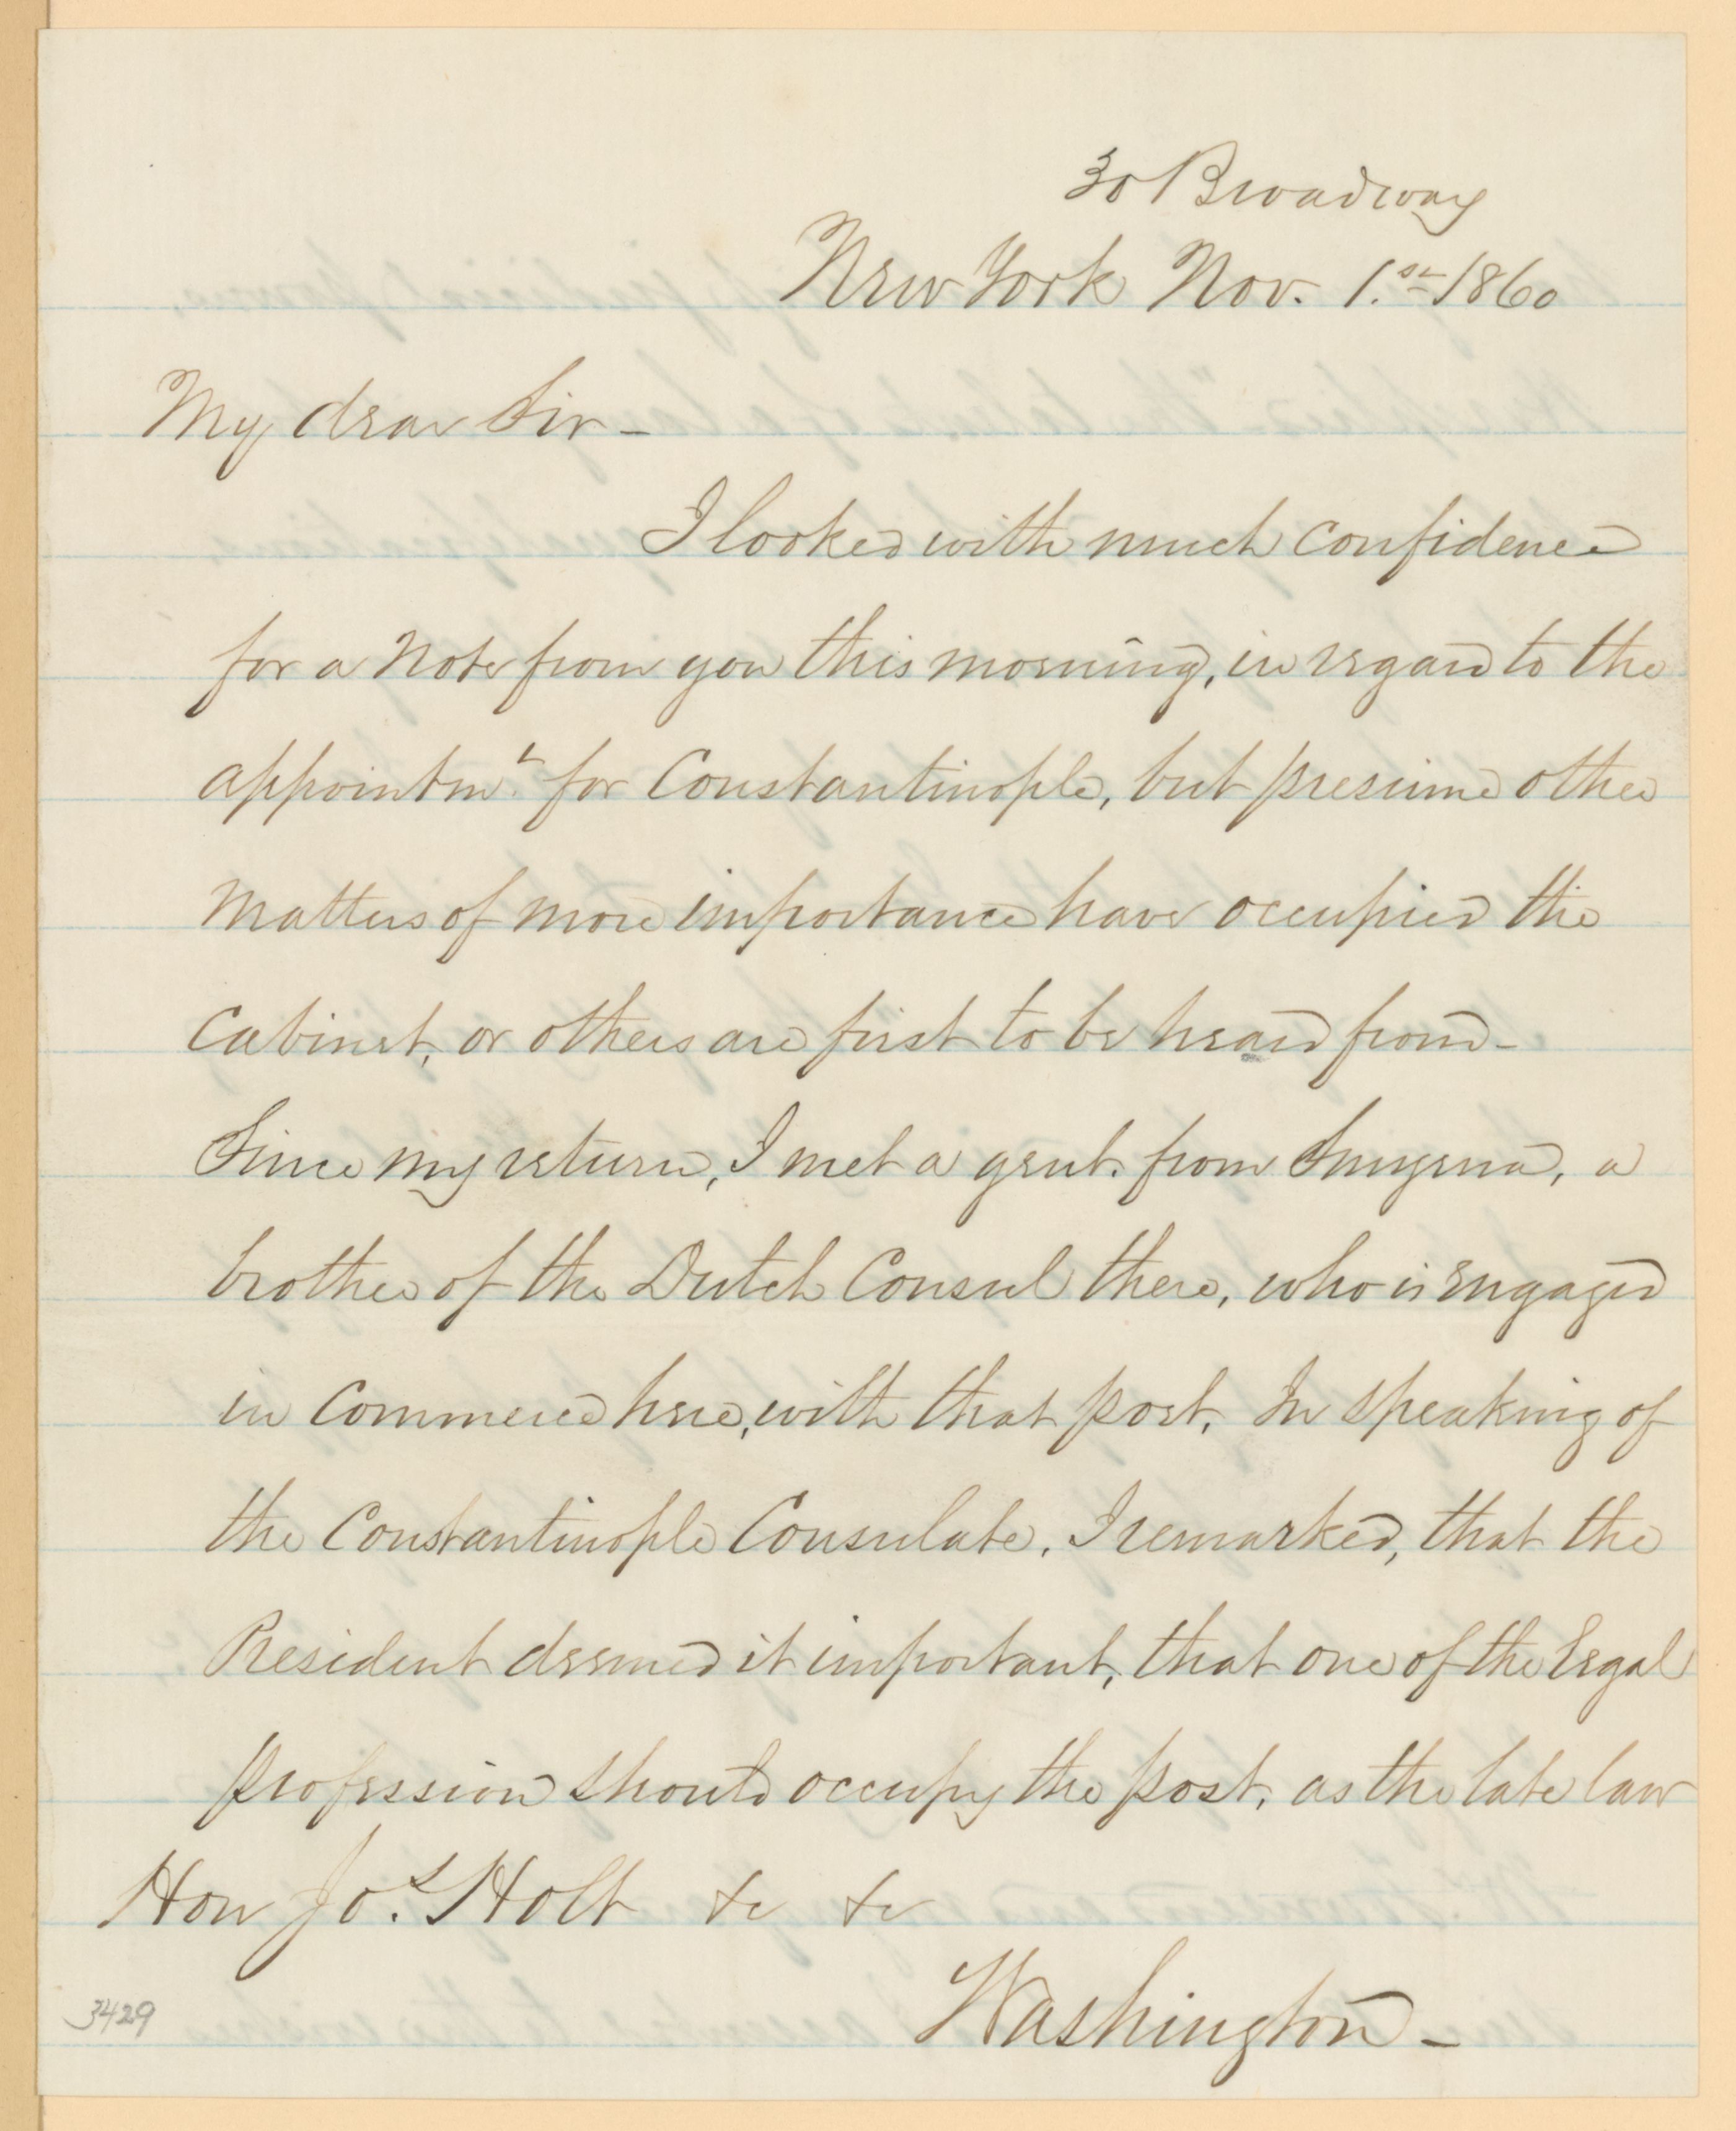 30 Broadway
New York Nov. 1.st 1860
My dear Sir -
I looked with much confidence
for a note from you this morning, in regard to the
appointmt. for Constantinople, but presume other
matters of more importance have occupied the
Cabinet, or others are first to be heard from -
Since my return, I met a gent. from Smyrna, a
brother of the Dutch Consul there, who is engaged
in Commerce here, with that port. In speaking of
the Constantinople Consulate, I remarked, that the
President deemed it important, that one of the legal
profession should occupy the post, as the late law
Hon Jos. Holt &c &c
Washington -
3429